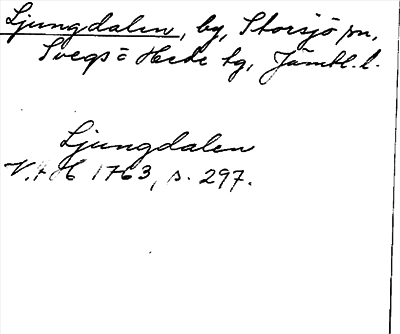 Ljungdalen, by, Storsjö sn,
Svegs o Hede tg, Jämtl. l.
Ljungdalen
V. t H 1763, s. 297.